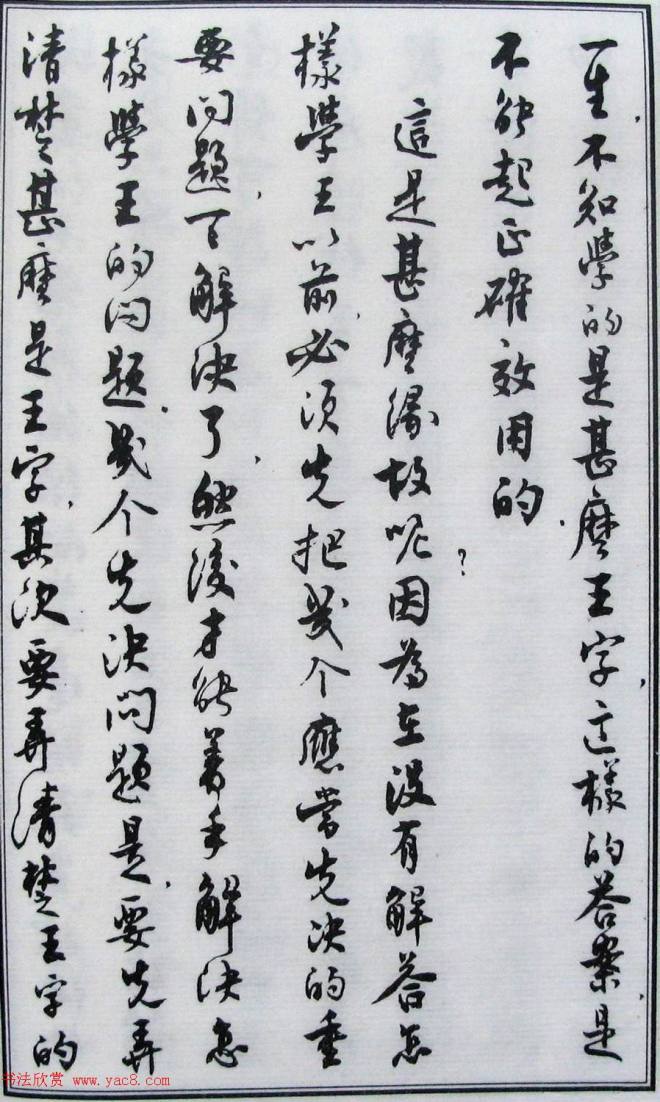 一生，不知學的是甚麼王字，这樣的答案，是
不能起正確效用的．
這是甚麼緣故呢？因為在没有解答怎
樣學王以前，必須先把幾个應當先决的重
要问題，一一解決了，然後才能着手解决怎
樣學王的问題．幾个先决問題是，要先弄
清楚甚麼是王字，其次要弄清楚王字的
书法欣赏 www.yac8.com